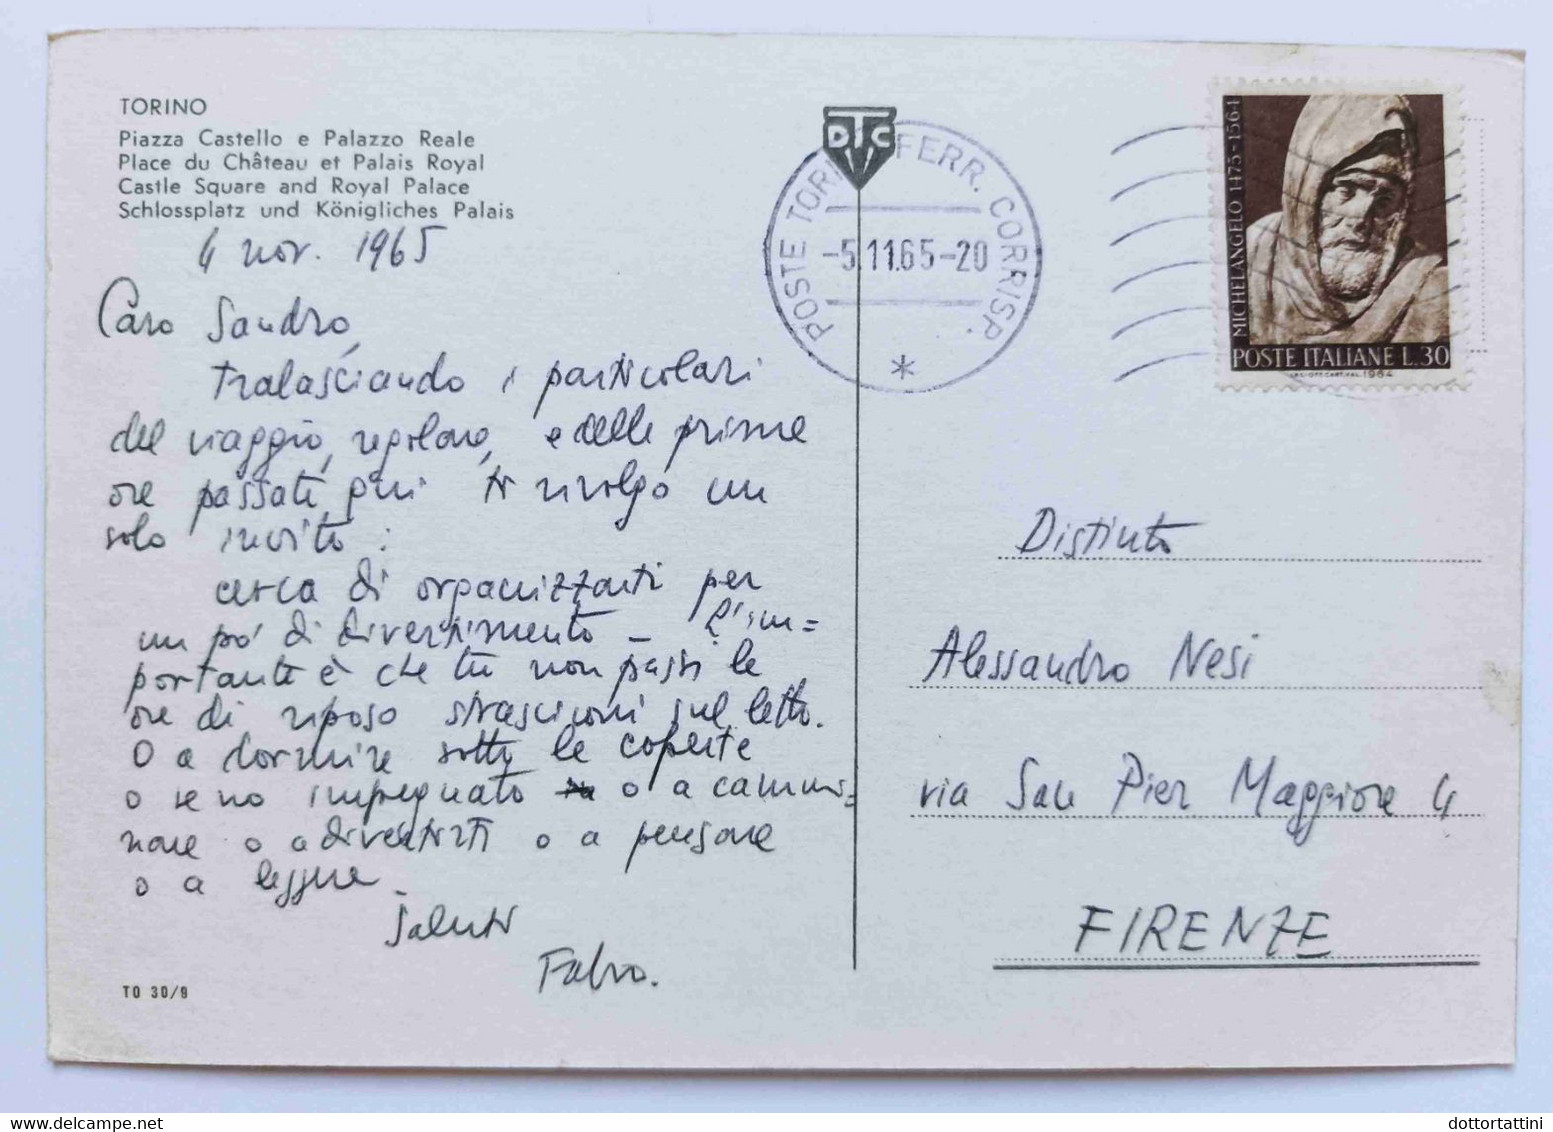 TORINO
Piazza Castello e Palazzo Reale
Place du Château et Palais Royal
Castle Square and Royal Palace
Schlossplatz und Königliches Palais
4 nov. 1965
Caro Sandro,
tralasciando i particolari
del viaggio, regolare, e delle prime
ore passate qui ti rivolgo un
solo invito:
cerca di organizzarti per
un po' di divertimento - L'im=
portante è che tu non passi le
ore di riposo strascicomi sul letto.
O a dormire sotto le coperte
o se no impegnato o a cammi=
nare o a divertirti o a pensare
o a leggere.
Saluti
Fabio.
TO 30/9
DTC
POSTE TORINO FERR. CORRISP.
-5.11.65-20
MICHELANGELO 1475-1564
POSTE ITALIANE L.30
1964
Distinto
Alessandro Nesi
via San Pier Maggiore 4
FIRENZE
www.delcampe.net
dottortattini